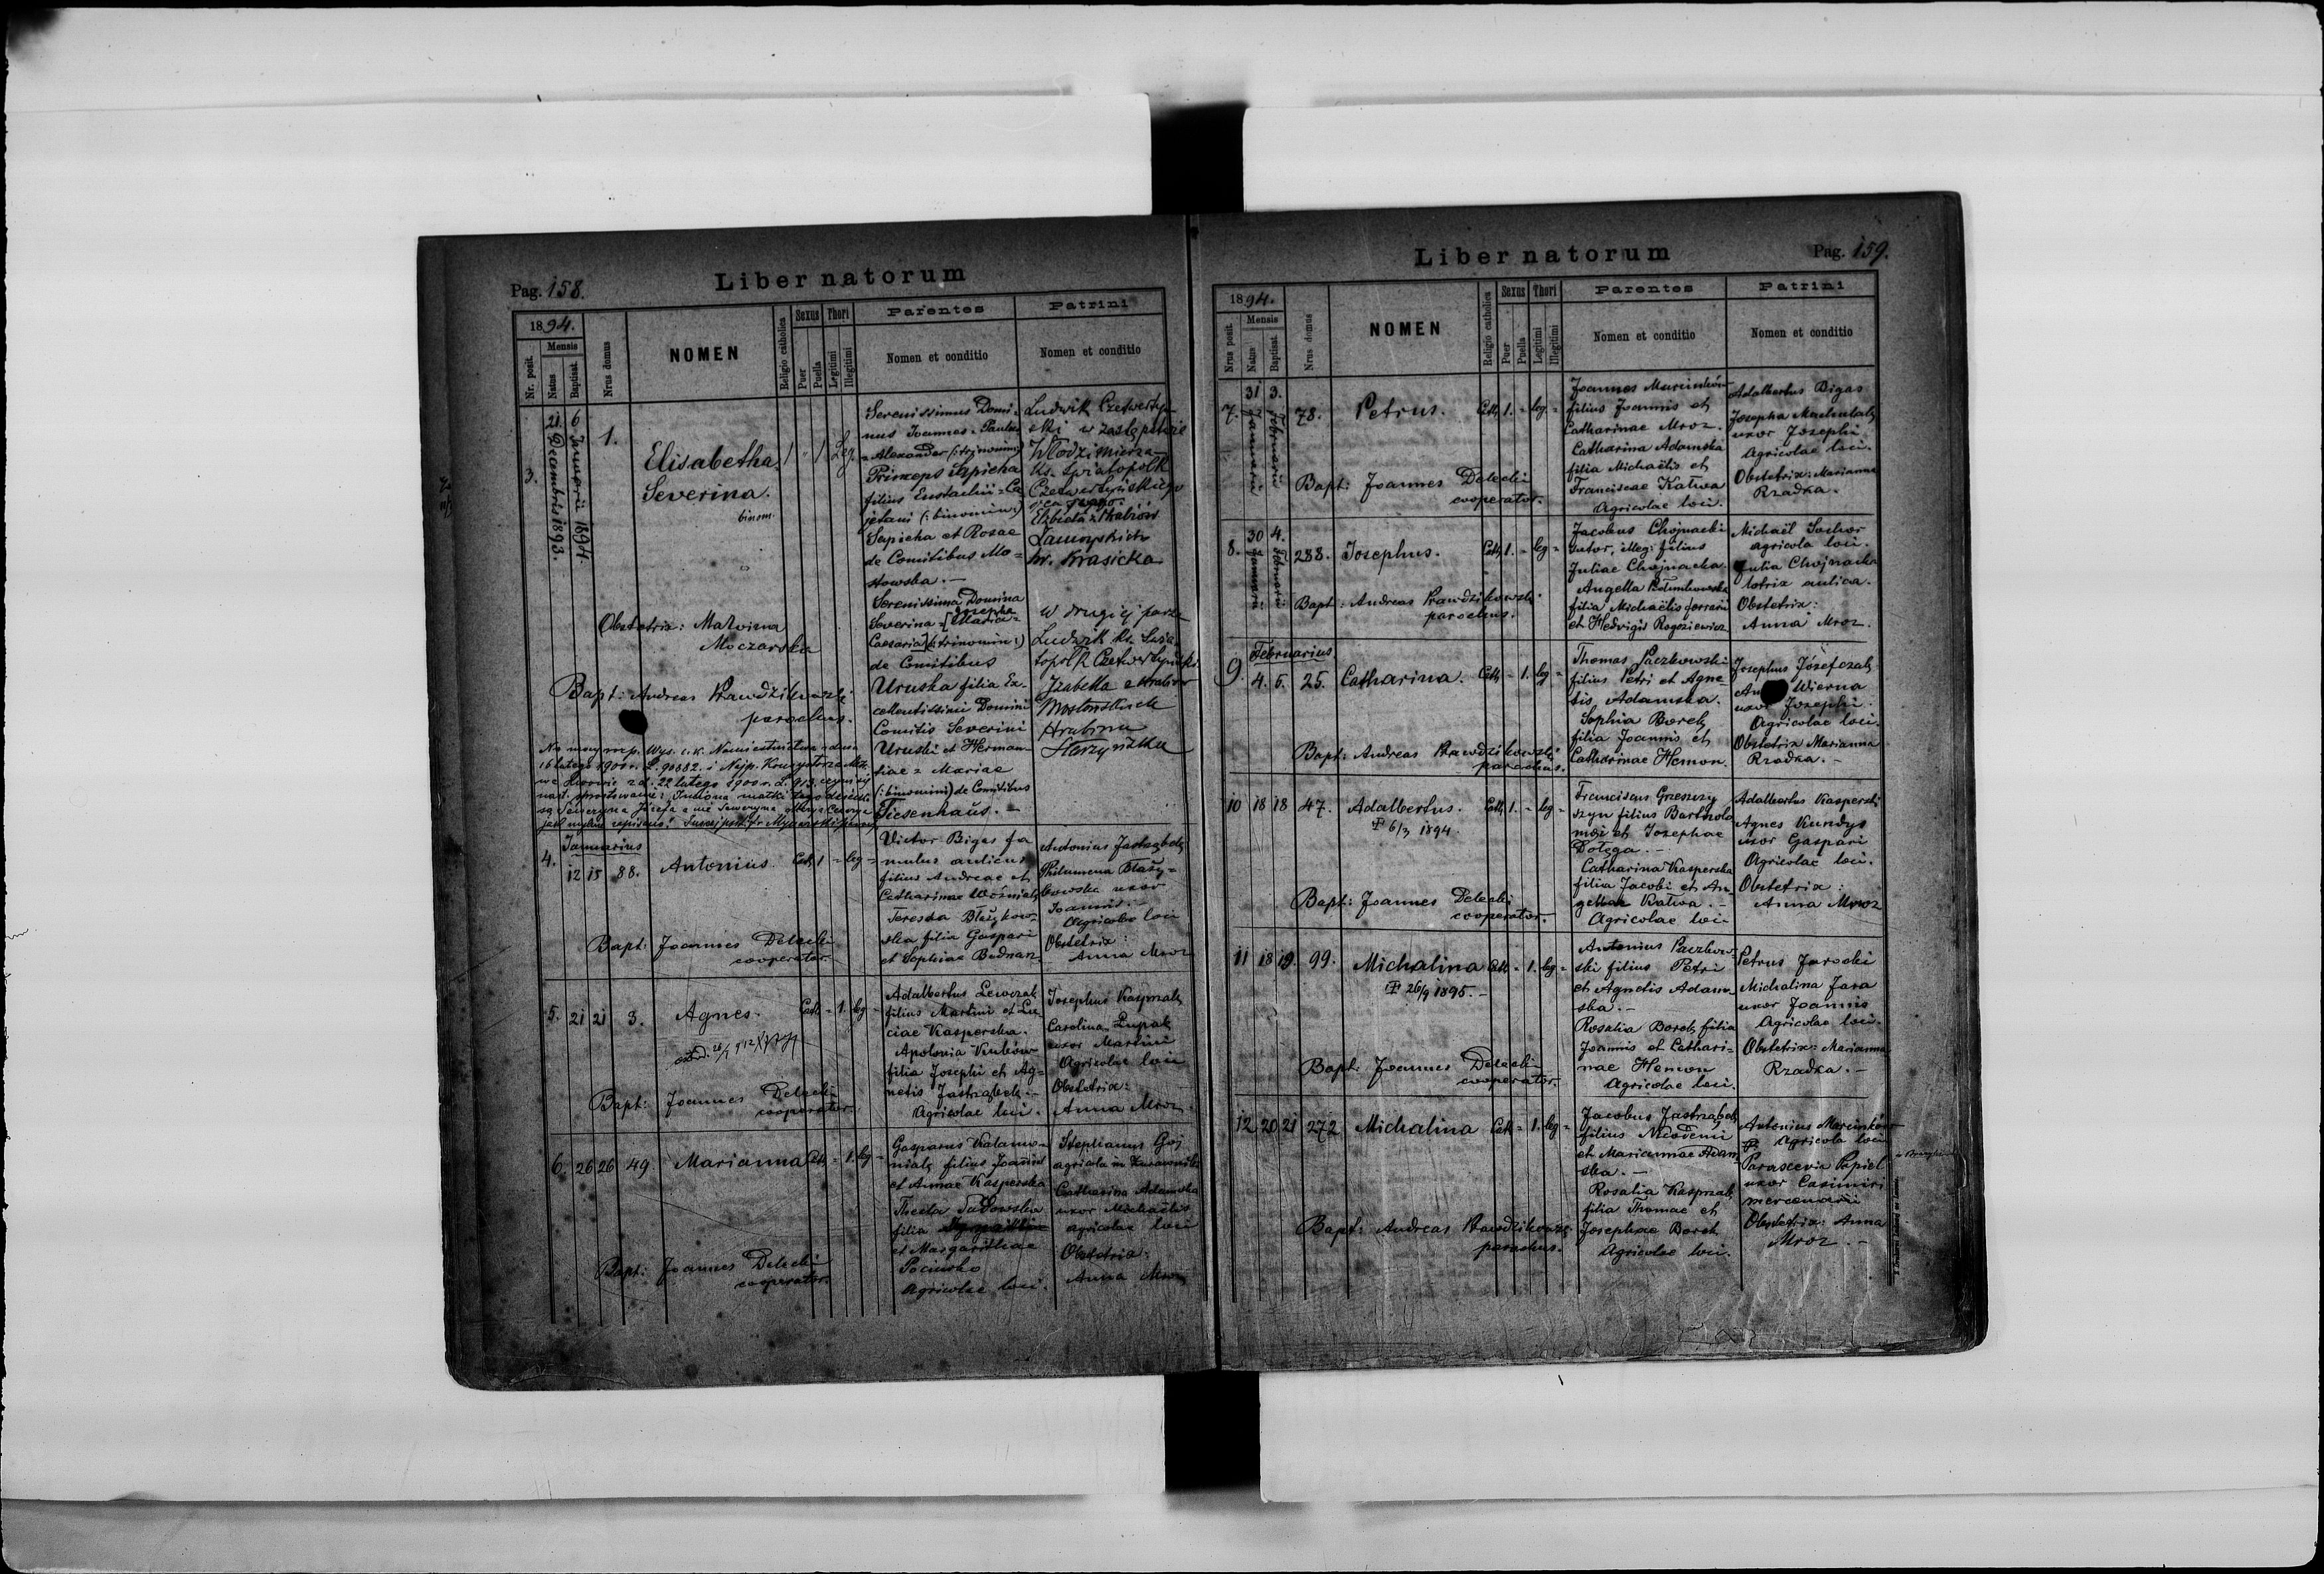 Pag. 158.
Liber natorum
1894.
Nr. posit.
Mensis
Natus
Baptisat.
Nrus domus
NOMEN
Religio catholica
Sexus
Puer
Puella
Thori
Legitimi
Illegitimi
Parentes
Nomen et conditio
Patrini
Nomen et conditio
3.
21. Decembris 1893.
6 Januarii 1894.
1.
Elisabetha
Severina.
binom.
Leg.
Serenissimus Domi-
nus Joannes-Paulus
-Alexander (:trinominis:)
Princeps Sapieha
filius Eustachii-Ca
jetani (:binominis:)
Sapieha et Rosae
de Comitibus Mo-
stowska.-
Serenissima Domina
Severina-[Maria-
Josepha
Caesaria](:trinominis:)
de Comitibus
Uruska filia Ex-
cellentissimi Domini
Comitis Severini
Uruski et Herman-
tiae-Mariae
(:binominis:) de Comitibus
Tiesenhaus.-
Ludwik Czetwertyń-
ski w zastępstwie
Włodzimierza
ks. Światopolk
Czetwertyńskiego
ojca swego.
Elżbieta z Hrabiów
Zamoyskich
hr. Krasicka
w drugiej parze
Ludwik ks. Świa
topolk Czetwertyński
Izabella z Hrabiów
Mostowskich
Hrabina
Starzyńska
Obstetrix: Malwina
Moczarska
Bapt: Andreas Prawdzikowski
parochus.
4.
Januarius
12 15 88.
Antonius.
Cath 1 - leg -
Victor Bigas fa
mulus aulicus
filius Andreae et
Catharinae Woźniak
Teresia Błażkow-
ska filia Gaspari
et Sophiae Bednarz
Antonius Jastrząbek
Philumena Błaży-
kowska uxor
Joannis.-
Agricolae loci
Obstetrix:
Anna Mroz
Bapt: Joannes Delecki
cooperator.
5. 21 21 3.
Agnes.
Cath - 1. leg -
Adalbertus Lewczak
filius Martini et Lu-
ciae Kasperska.
Apolonia Kubów
filia Josephi et Ag-
netis Jastrząbek.-
Agricolae loci.
Josephus Kasprzak
Carolina Lupak
uxor Martini
Agricolae loci
Obstetrix:
Anna Mroz.
Bapt: Joannes Delecki
cooperator.
6. 26 26 49.
Marianna
Cath - 1. leg -
Gasparus Kalamu-
niak filius Joannis
et Annae Kasperska
Thecla Sadowska
filia
et Margarithae
Agricolae loci.
Stephanus Goj
agricola in
Catharina Adamska
uxor Michaëlis
agricolae loci
Obstetrix:
Anna Mroz
Bapt: Joannes Delecki
cooperator.
Liber natorum
Pag. 159.
1894.
Nrus posit.
Mensis
Natus
Baptisat.
Nrus domus
NOMEN
Religio catholica
Sexus
Puer
Puella
Thori
Legitimi
Illegitimi
Parentes
Nomen et conditio
Patrini
Nomen et conditio
7.
31 Januarii
3. Februarii
78.
Petrus.
Cath 1. - leg. -
Joannes Marcinków
filius Joannis et
Catharinae Mroz.
Catharina Adamska
filia Michaëlis et
Franciscae Katwa
Agricolae loci.
Adalbertus Bigas
Josepha Machulak
uxor Josephi
Agricolae loci.
Obstetrix: Marianna
Rzadka.
Bapt: Joannes Delecki
cooperator.
8.
30 Januarii
4. Februarii
288.
Josephus.
Cath 1. - leg -
Jacobus Chojnacki
sutor, illeg: filius
Juliae Chojnacka.
Angella
filia Michaëlis
et Hedvigis Rogoziewicz
Michaël Sochor
agricola loci.
Julia Chojnacka
lotrix aulica.
Obstetrix:
Anna Mroz.
Bapt: Andreas Prawdzikowski
parochus.
9.
Februarius
4. 5. 25.
Catharina.
Cath - 1. leg -
Thomas Paczkowski
filius Petri et Agne-
tis Adamska.
Sophia Borek
filia Joannis et
Catharinae Hemon.
Josephus Józefczak
Wierna
uxor Josephi.
Agricolae loci.
Obstetrix Marianna
Rzadka.-
Bapt: Andreas Prawdzikowski
parochus.
10 18 18 47.
Adalbertus.
6/3 1894.
Cath 1. - leg -
Franciscus Grzeszczy
szyn filius Bartholo
maei et Josephae
Dołęga.-
Catharina Kasperska
filia Jacobi et An-
gellae Katwa.-
Agricolae loci
Adalbertus Kasperski
Agnes Kundys
uxor Gaspari
Agricolae loci.
Obstetrix:
Anna Mroz
Bapt: Joannes Delecki
cooperator.
11 18 19. 99.
Michalina
26/9 1895.-
Cath - 1. leg -
Antonius Paczkow-
ski filius Petri
et Agnetis Adam-
ska.-
Rosalia Borek filia
Joannis et Cathari-
nae Hemon
Agricolae loci.
Petrus Jarocki
Michalina Jara
uxor Joannis
Agricolae loci.
Obstetrix: Marianna
Rzadka.-
Bapt: Joannes Delecki
cooperator.
12 20 21 272
Michalina
Cath - 1. leg -
Jacobus Jastrząbek
filius Nicodemi
et Mariannae Adam-
ska.-
Rosalia Kasprzak
filia Thomae et
Josephae Borek
Agricolae loci.
Antonius Marcinków
Agricola loci
Parascevia Papiel
uxor Casimiri
mercenarii
Obstetrix: Anna
Mroz.-
Bapt: Andreas Prawdzikowski
parochus.